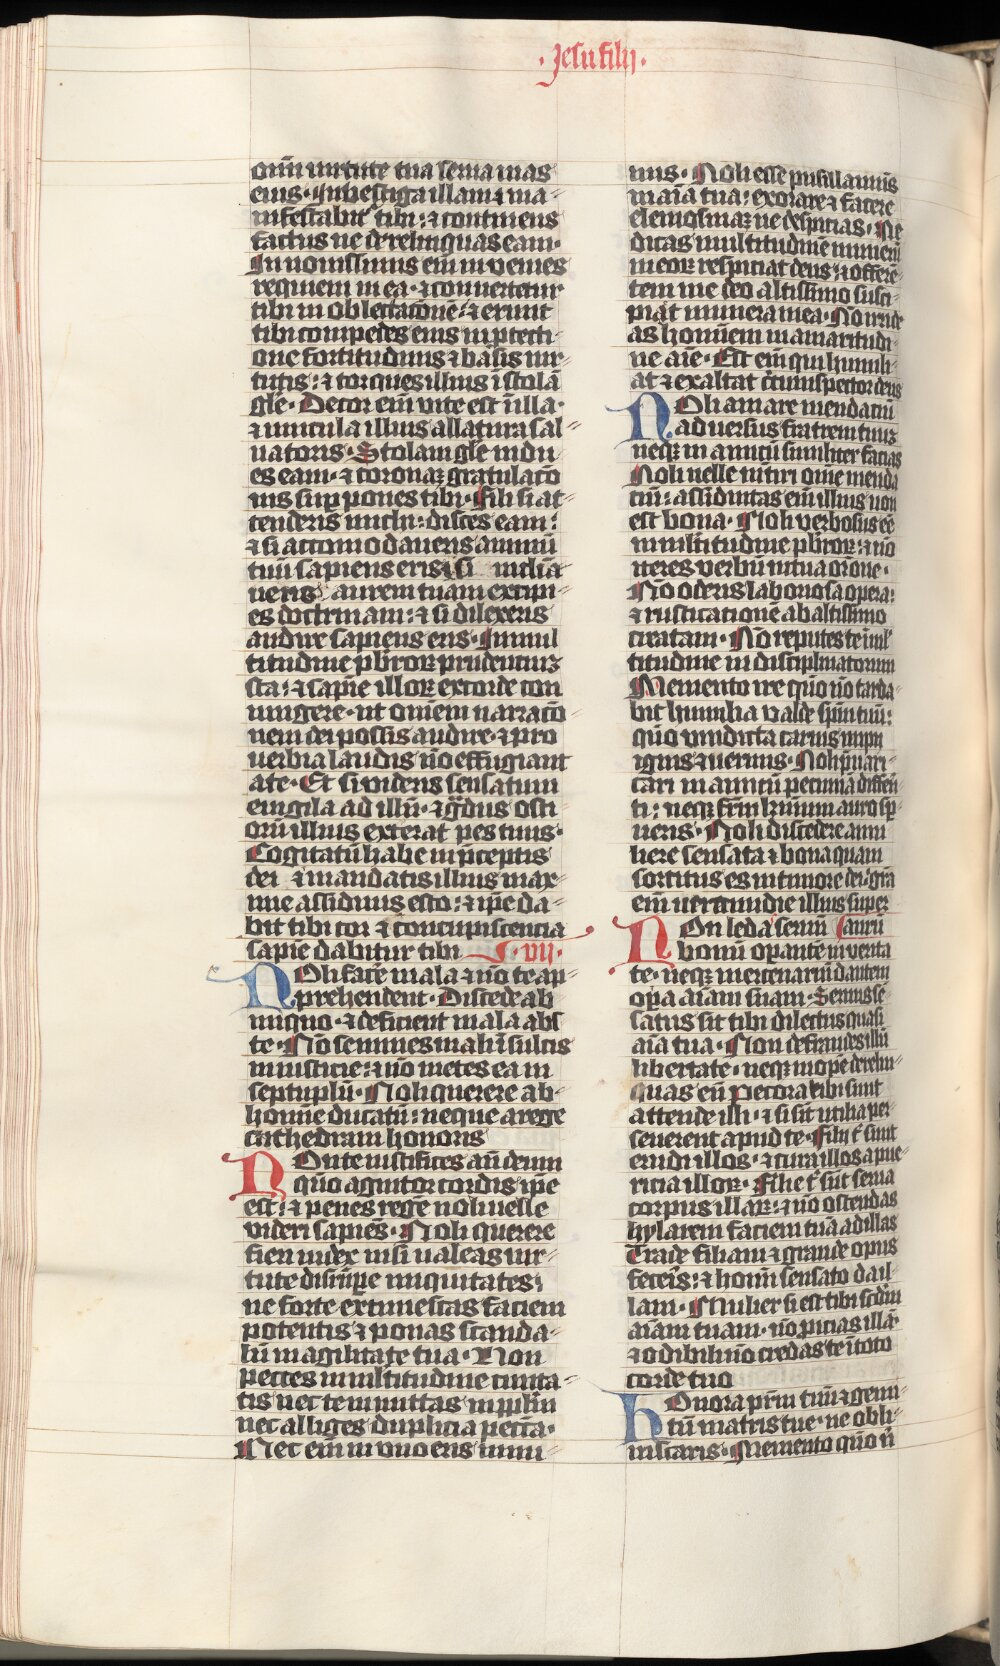 · Jesu filij ·
om̄i uirtute tua serua uias
eius · Inuestiga illam ⁊ ma-
nifestabit᷑ tibi : ⁊ continens
factus ne derelinquas eam ·
In nouissimis em̄ inuenies
requiem in ea · ⁊ conuertetur
tibi in oblectaconē : ⁊ erunt
tibi compedes eius in ꝓtecti-
one fortitudinis ⁊ basis uir-
tutis : ⁊ torques illius ī stolā
gle · Decor em̄ uite est ī illa ·
⁊ uincula illius alligatura sal-
uatoris · Stolam gle indu-
es eam · ⁊ coronaꝫ gratulacō
nis suꝑ pones tibi · Fili si at-
tenderis michi : disces eam :
⁊ si accomodaueris animū
tuū sapiens eris ⁊ si inclia
ueris aurem tuam excipi-
es doctrinam : ⁊ si dilexeris
audire sapiens eris · In mul
titudine pb̄roꝝ prudentiuꝫ
sta : ⁊ sapīe illoꝝ ex corde con
iungere · ut om̄em narracō
nem dei possis audire · ⁊ pro
uerbia laudis nō effugiant
a te · Et si uideris sensatum
euigila ad illū · ⁊ g̊dus osti
orū illius exterat pes tuus ·
Cogitatū habe in p̄ceptis
dei ⁊ in mandatis illius max-
ime assiduus esto : ⁊ ip̄e da-
bit tibi cor ⁊ concupiscencia
sapīe dabitur tibi · vij ·
Noli facē mala ⁊ nō te ap-
prehendent · Discede ab
iniquo · ⁊ deficient mala abs
te · Nō semines mala ī sulcis
iniusticie : ⁊ nō metes ea in
septuplū · Noli querere ab-
homīe ducatū : neque a rege
cathedram honoris
Non te iustifices an̄ deum
qūo agnitor cordis ip̄e
est : ⁊ penes regē noli uelle
videri sapiēs · Noli querere
fieri iudex nisi ualeas uir-
tute disrūpe iniquitates :
ne forte extimescas faciem
potentis ⁊ ponas scanda-
lū in agilitate tua · Non
pecces in multitudine ciuita-
tis nec te inmittas in ppl̄m
nec alliges duplicia pecc̄a ·
Nec em̄ in vno eris inmu
nis · Noli esse pusillanimis
in aīa tua : exorare ⁊ facere
elemosinaꝫ ne despicias · Ne
dicas in multitudīe munerū
meoꝝ respiciat deus : ⁊ offerē-
tem me deo altissimo susci-
piat munera mea · Nō irride
as hominem in amaritudi-
ne aīe · Est em̄ qui humili-
at ⁊ exaltat circumspector deus
Noli amare mendaciū
aduersus fratrem tuuꝫ
neqꝫ in amicū similiter facias
Noli uelle mentiri om̄e menda
ciū : assiduitas em̄ illius non
est bona · Noli verbosus eē
in multitudine pb̄roꝝ : ⁊ nō
iteres verbū in tua orōne ·
Nō oderis laboriosa opera :
⁊ rusticationē ab altissimo
creatam · Nō reputes te ī mul
titudine indisciplinatorum
Memento ire qūo nō tarda-
bit humilia valde sp̄m tuū :
qūo vindicta carnis impii
ignis ⁊ uermis · Noli p̄uari-
cari in amicū pecuniā differē-
ti : neqꝫ fr̄m kr̄mum auro sp̄-
ueris · Noli discedere a mu
liere sensata ⁊ bona quam
sortitus es in timore dei · gr̄a
em̄ uerecundie illius super
Non ledas seruū [aurū
bonū opantē in verita
te · neqꝫ mercenariū dantem
opa aīam suam · Seruus sē-
satus sit tibi dilectus quasi
aīa tua · Non defraudes illū
libertate · neqꝫ inopē derelin-
quas eū Pecora tibi sunt
attende illi · ⁊ si sūt utilia per-
seuerent apud te · Filij t̄ sunt
erudi illos · ⁊ cura illos a pue-
ricia illoꝝ · Filie t̄ sūt serua
corpus illaꝝ : ⁊ nō ostendas
hylarem faciem tuā ad illas
Trade filiam ⁊ grande opus
feceris : ⁊ homī sensato da il-
lam · Mulier si est tibi scd̄m
aīam tuam · nō ꝓicias illā ·
⁊ odibili nō credas te ī toto
corde tuo
Honora pr̄m tuū ⁊ gemi-
tū matris tue · ne obli-
uiscaris · Memento qūo n̄